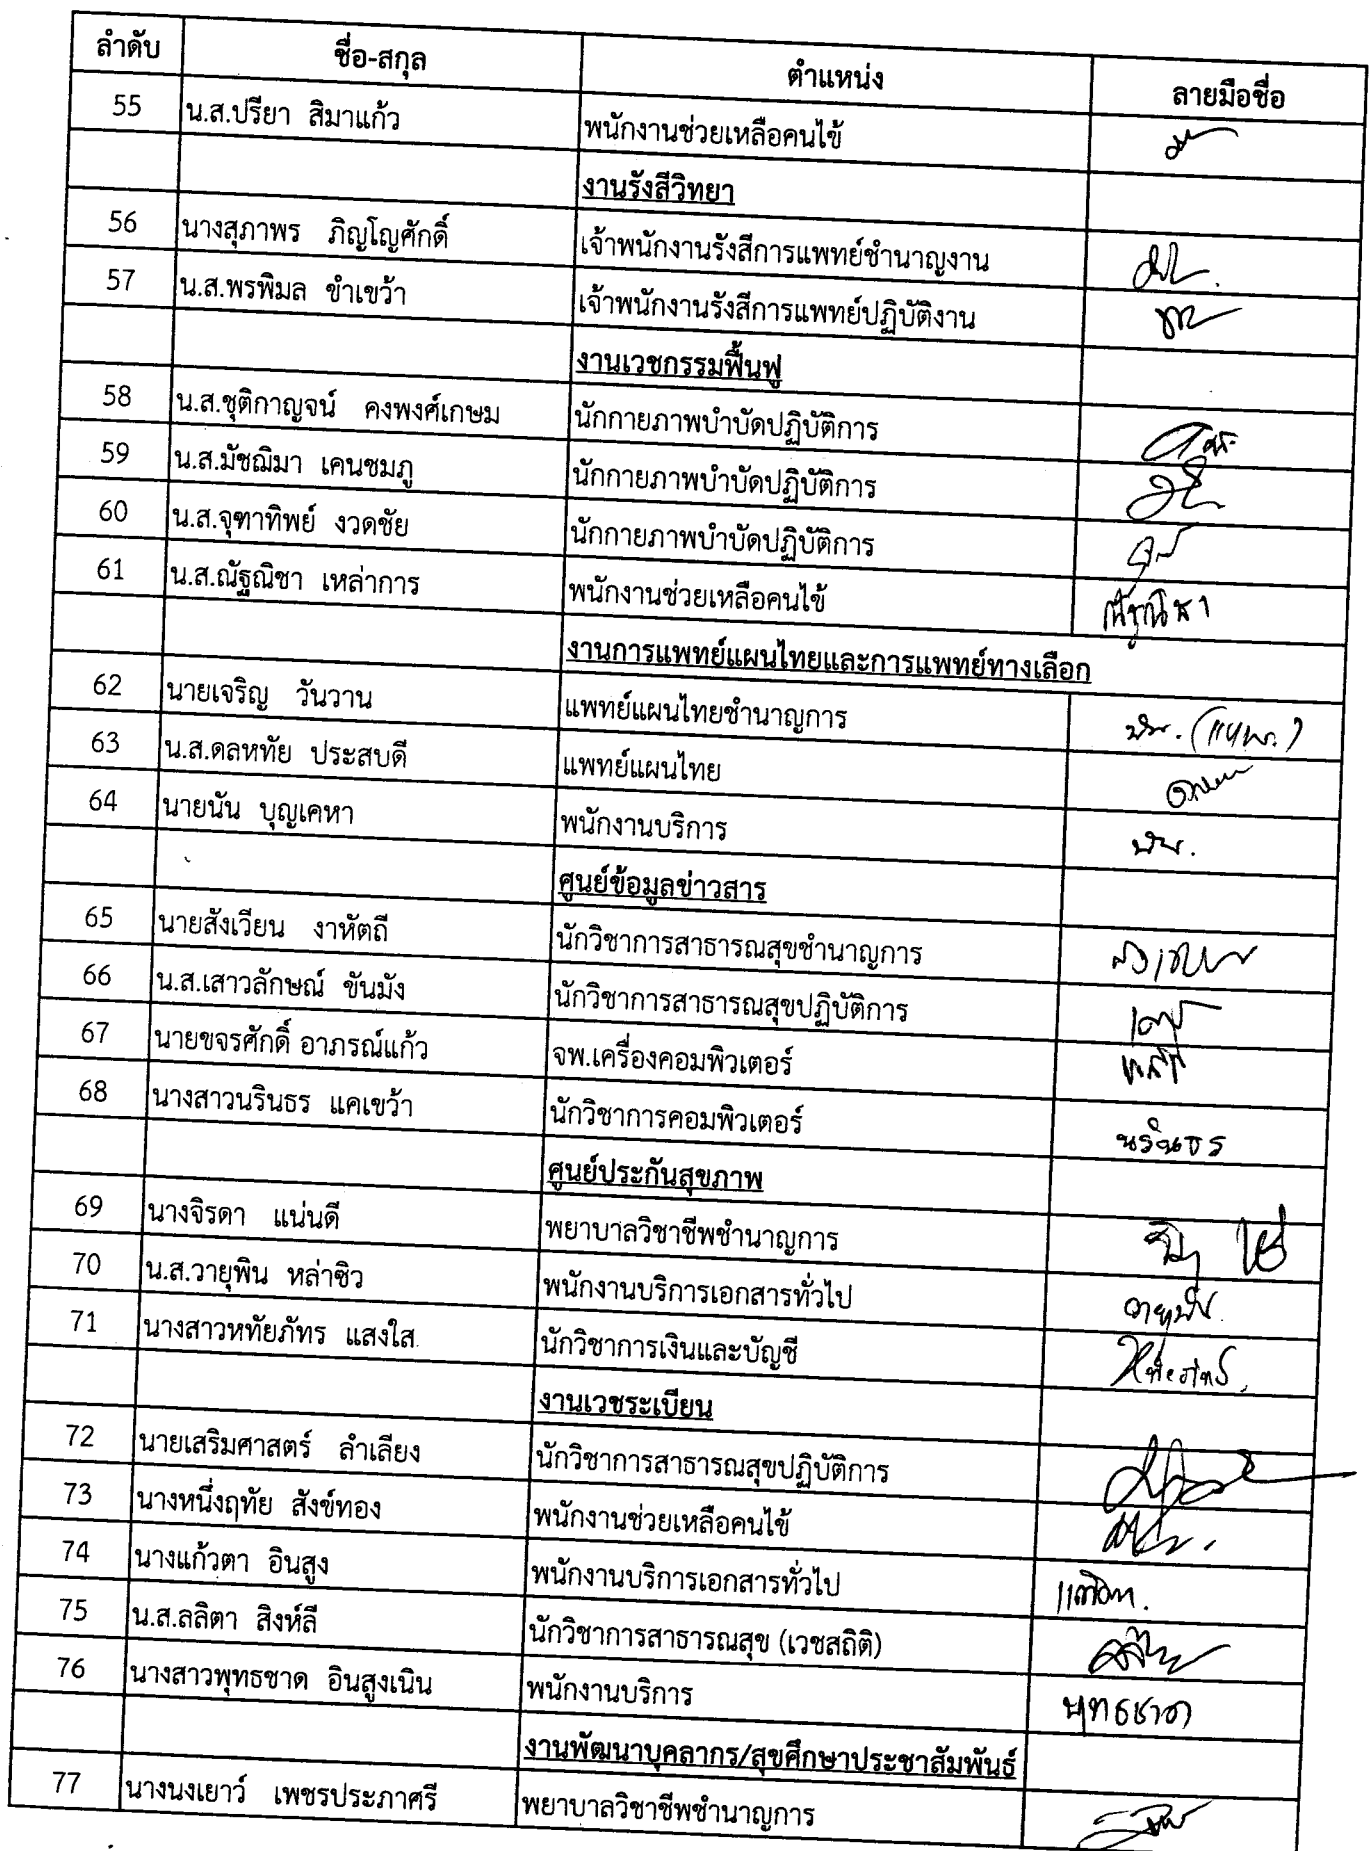 ลำดับ ชื่อ-สกุล ตำแหน่ง ลายมือชื่อ
55 น.ส.ปรียา สิมาแก้ว พนักงานช่วยเหลือคนไข้
งานรังสีวิทยา
56 นางสุภาพร ภิญโญศักดิ์ เจ้าพนักงานรังสีการแพทย์ชำนาญงาน
57 น.ส.พรพิมล ขำเขว้า เจ้าพนักงานรังสีการแพทย์ปฏิบัติงาน
งานเวชกรรมฟื้นฟู
58 น.ส.ชุติกาญจน์ คงพงศ์เกษม นักกายภาพบำบัดปฏิบัติการ
59 น.ส.มัชฌิมา เคนชมภู นักกายภาพบำบัดปฏิบัติการ
60 น.ส.จุฑาทิพย์ งวดชัย นักกายภาพบำบัดปฏิบัติการ
61 น.ส.ณัฐณิชา เหล่าการ พนักงานช่วยเหลือคนไข้ ณัฐณิชา
งานการแพทย์แผนไทยและการแพทย์ทางเลือก
62 นายเจริญ วันวาน แพทย์แผนไทยชำนาญการ
63 น.ส.ดลหทัย ประสบดี แพทย์แผนไทย
64 นายนัน บุญเคหา พนักงานบริการ
ศูนย์ข้อมูลข่าวสาร
65 นายสังเวียน งาหัตถี นักวิชาการสาธารณสุขชำนาญการ
66 น.ส.เสาวลักษณ์ ขันมัง นักวิชาการสาธารณสุขปฏิบัติการ
67 นายขจรศักดิ์ อาภรณ์แก้ว จพ.เครื่องคอมพิวเตอร์
68 นางสาวนรินธร แคเขว้า นักวิชาการคอมพิวเตอร์ นรินธร
ศูนย์ประกันสุขภาพ
69 นางจิรดา แน่นดี พยาบาลวิชาชีพชำนาญการ
70 น.ส.วายุพิน หล่าซิว พนักงานบริการเอกสารทั่วไป วายุพิน
71 นางสาวหทัยภัทร แสงใส นักวิชาการเงินและบัญชี หทัยภัทร
งานเวชระเบียน
72 นายเสริมศาสตร์ ลำเลียง นักวิชาการสาธารณสุขปฏิบัติการ
73 นางหนึ่งฤทัย สังข์ทอง พนักงานช่วยเหลือคนไข้
74 นางแก้วตา อินสูง พนักงานบริการเอกสารทั่วไป แก้วตา
75 น.ส.ลลิตา สิงห์ลี นักวิชาการสาธารณสุข (เวชสถิติ)
76 นางสาวพุทธชาด อินสูงเนิน พนักงานบริการ พุทธชาด
งานพัฒนาบุคลากร/สุขศึกษาประชาสัมพันธ์
77 นางนงเยาว์ เพชรประภาศรี พยาบาลวิชาชีพชำนาญการ